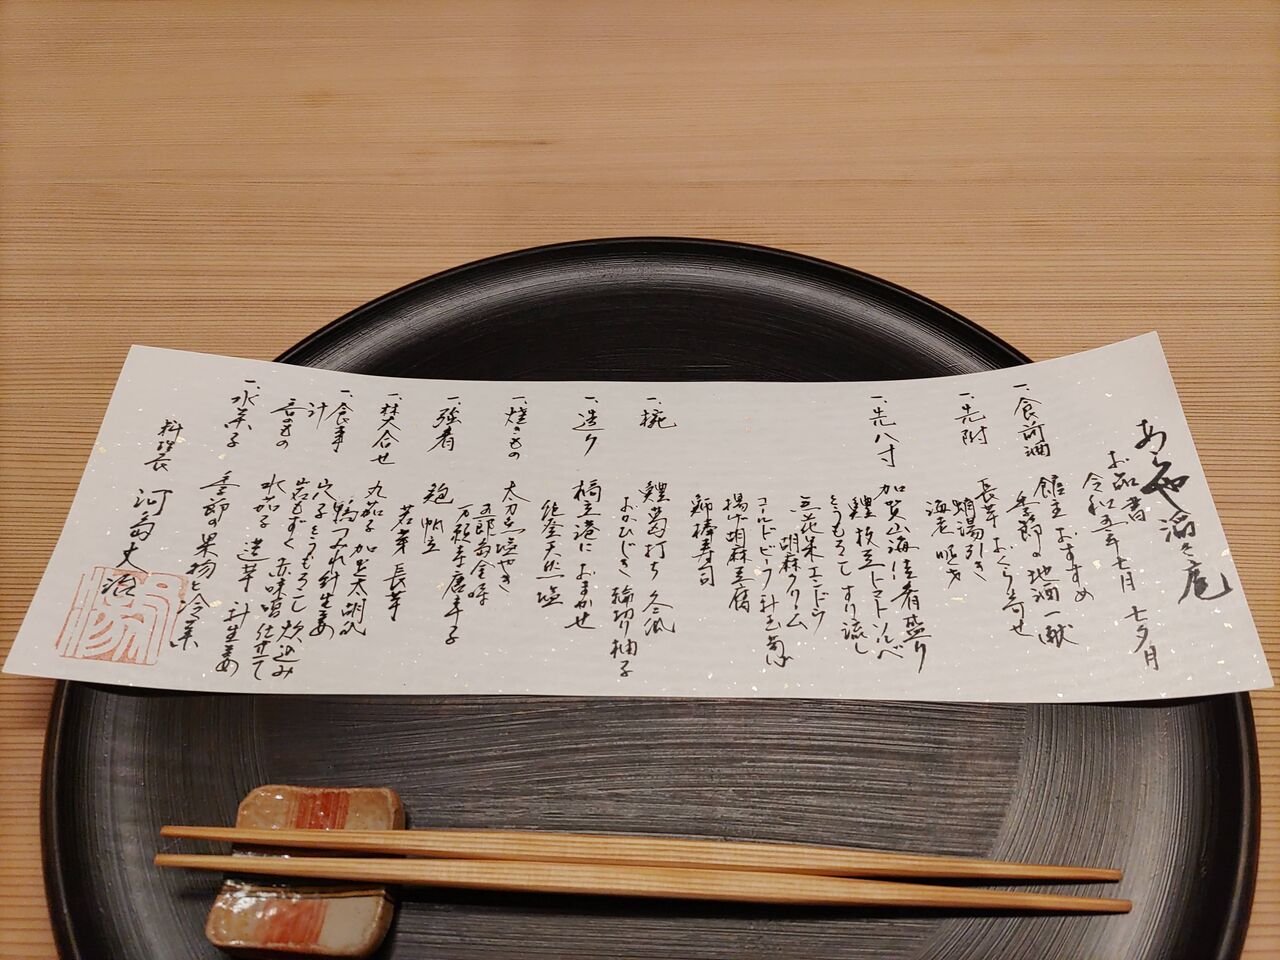 あらや滔々庵
お品書
令和五年七月 七夕月
一、食前酒
館主おすすめ
季節の地酒一献
一、先附
長芋おくら寄せ
蛸湯引き
海老
一、先八寸
加賀山海佳肴盛り
鱧 枝豆 トマトソルベ
とうもろこしすり流し
無花果 エンドウ
胡麻クリーム
コールドビーフ
揚げ胡麻豆腐
棒寿司
一、椀
鱧葛打ち 冬瓜
おかひじき 輪切り柚子
一、造り
橋立港におまかせ
能登天然塩
一、焼きもの
太刀魚塩やき
五郎島金時
万願寺唐辛子
一、強肴
鮑 帆立
若芽 長芋
一、焚合せ
丸茄子 加賀太胡瓜
鴨つみれ 針生姜
一、食事
穴子とうもろこし炊込み
汁
岩もずく 赤味噌仕立て
香のもの
水茄子 蓮芋 針生姜
一、水菓子
季節の果物と冷菓
料理長 河島大治